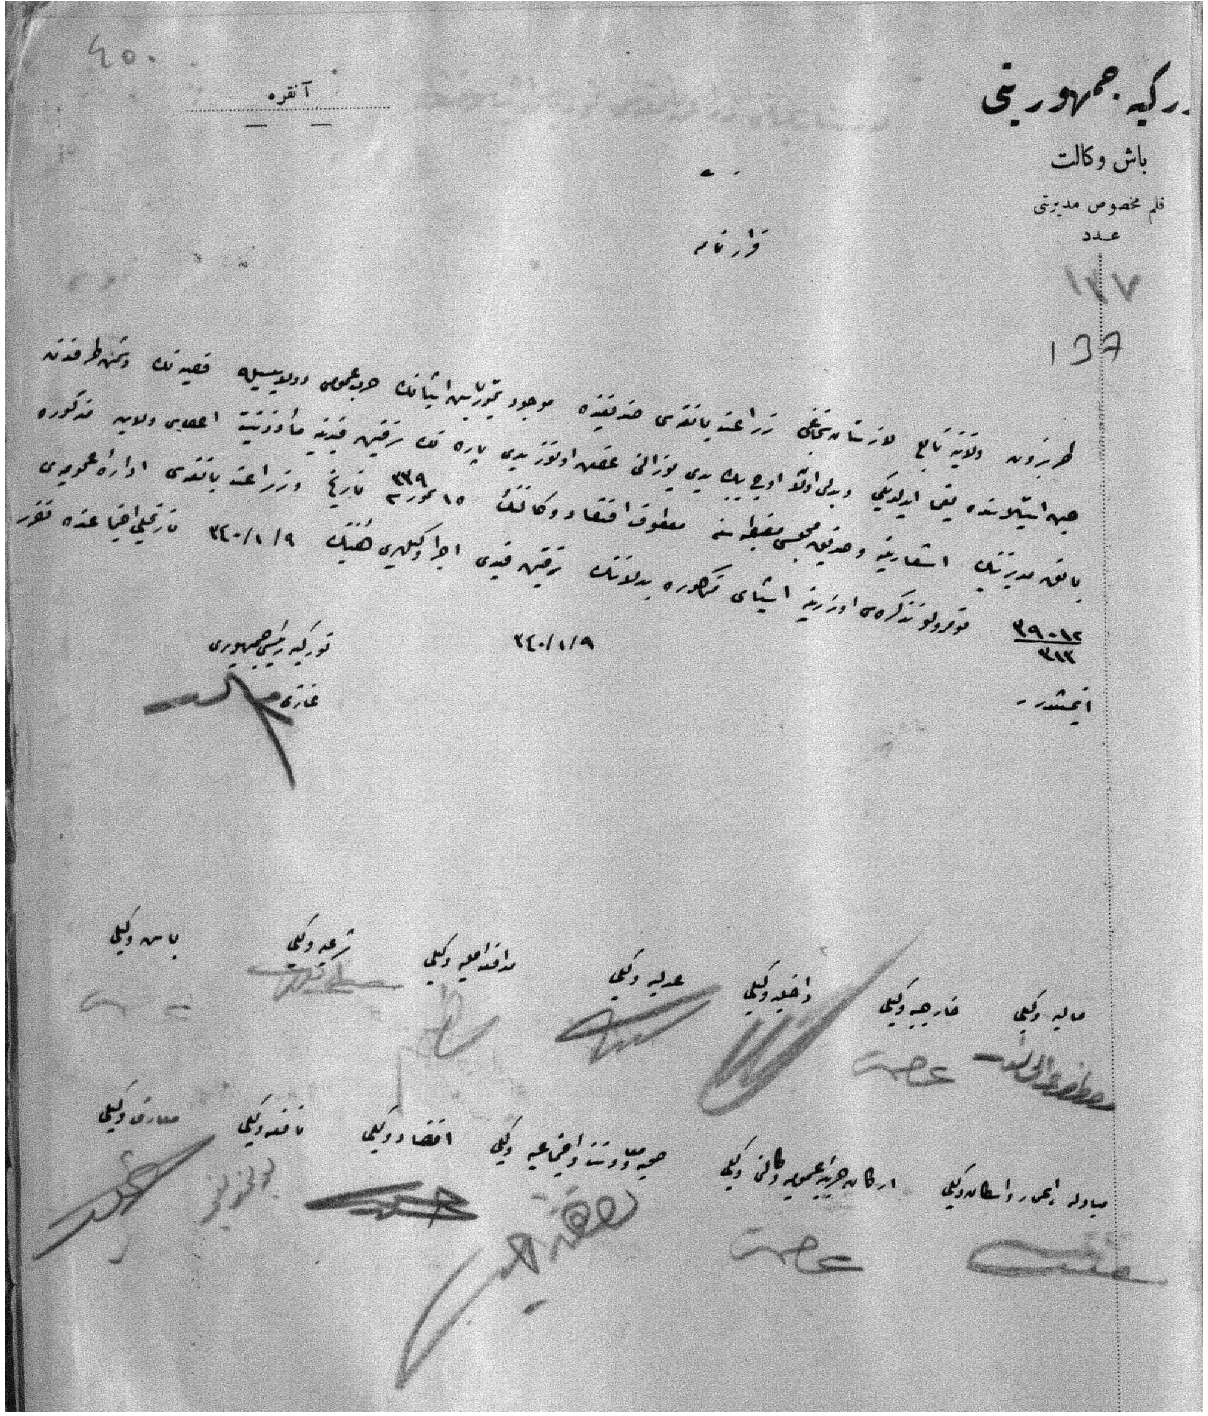 ٤٥٠
آنقره
توركيه جمهوريتى
باش وكالت
قلم مخصوص مديريتى
عدد
١٣٧
137
قرارنامه
طربزون ولايتنه تابع لازستان سنجاغى زراعت بانقه‌سى صندیغنده موجود اشيانك حرب عمومى دولاييسيله قصبه‌نك دشمن طرفندن
حين استيلاسنده يغما ايدلديكى وبدلى اولان اوچ بيك يدى يوز غروش اوتوز يدى پاره نك ترقين قيدينه مأذونيت اعطاسى ولايت مذكوره
بانق مديريتنك اشعارينه و مجلسى مضبطه‌سنه معطوف اقتصاد وكالتنك ١٥ تموز ٣٣٩ تاريخ وزراعت بانقه‌سى اداره عموميه‌سى
٣٩٠١٢/٣١٣ نومرولو تذكره‌سى اوزرينه اشياى مذكوره بدلاتنك ترقين قيدى اجرا وكيللرى هيئتنك ٣٤٠/١/٩ تاريخلى اجتماعنده تقرر
ايتمشدر
٣٤٠/١/٩
توركيه رئيس جمهورى
غازى
باش وكيلى
شرعيه وكيلى
مدافعه ملیه وكيلى
عدليه وكيلى
داخليه وكيلى
خارجيه وكيلى
ماليه وكيلى
عصمت
معارف وكيلى
نافعه وكيلى
اقتصاد وكيلى
صحيه ومعاونت اجتماعيه وكيلى
اركان حربيه عموميه وكالتى وكيلى
مبادله اعمار واسكان وكيلى
عصمت